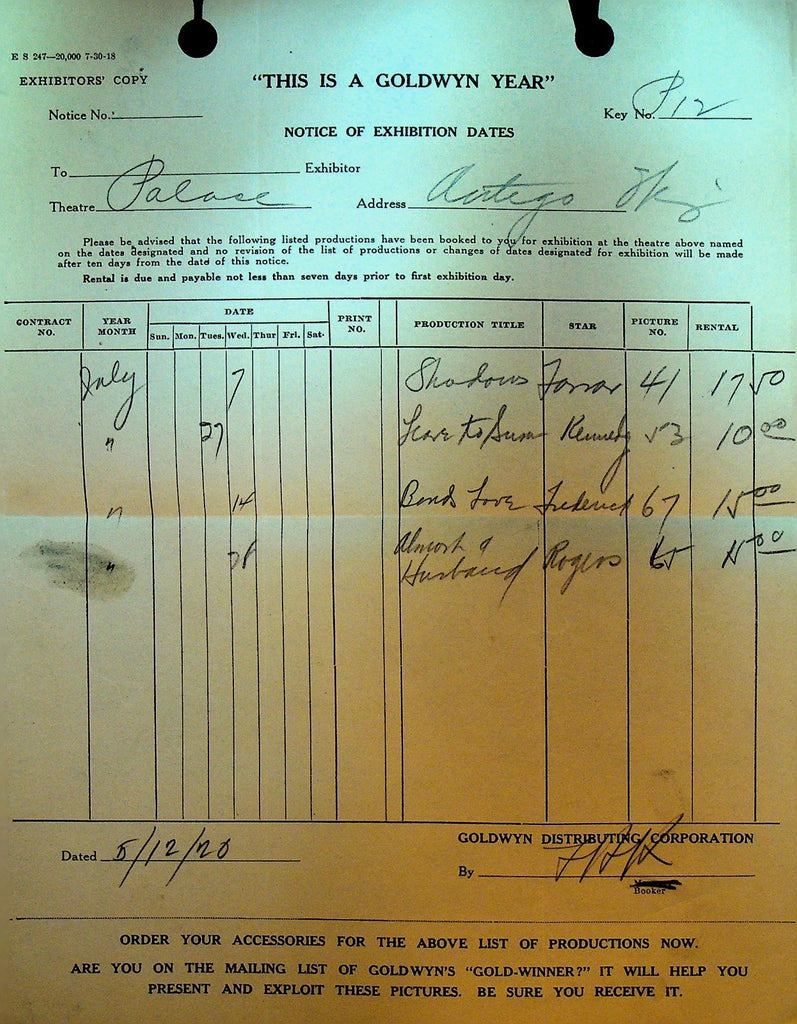 E S 247—20,000 7-30-18
EXHIBITORS' COPY
"THIS IS A GOLDWYN YEAR"
Notice No.: Key No. P12
NOTICE OF EXHIBITION DATES
To Exhibitor
Theatre Palace Address
Please be advised that the following listed productions have been booked to you for exhibition at the theatre above named
on the dates designated and no revision of the list of productions or changes of dates designated for exhibition will be made
after ten days from the date of this notice.
Rental is due and payable not less than seven days prior to first exhibition day.
CONTRACT NO. YEAR MONTH DATE PRINT NO. PRODUCTION TITLE STAR PICTURE NO. RENTAL
Sun. Mon. Tues. Wed. Thur Fri. Sat.
July 7 Shadows Farrar 41 17 50
" 27 Leave to Susan Kennedy 53 10 00
" 14 Bonds Love Frederick 67 15 00
" 28 Almost a Husband Rogers 65 15 00
Dated 5/12/20
GOLDWYN DISTRIBUTING CORPORATION
By
Booker
ORDER YOUR ACCESSORIES FOR THE ABOVE LIST OF PRODUCTIONS NOW.
ARE YOU ON THE MAILING LIST OF GOLDWYN'S "GOLD-WINNER?" IT WILL HELP YOU
PRESENT AND EXPLOIT THESE PICTURES. BE SURE YOU RECEIVE IT.